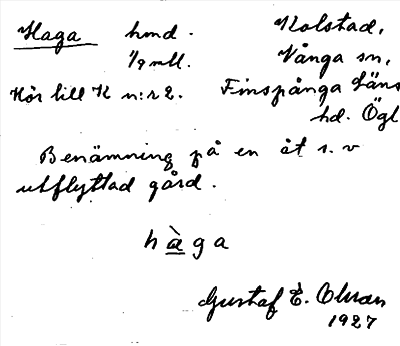 Haga hmd. Kolstad,
1/9 mtl. Vånga sn,
Hör till K n:r 2. Finspånga Läns
hd. Ögl
Benämning på en åt s. v
utflyttad gård.
hàga
Gustaf E. Olsson
1927